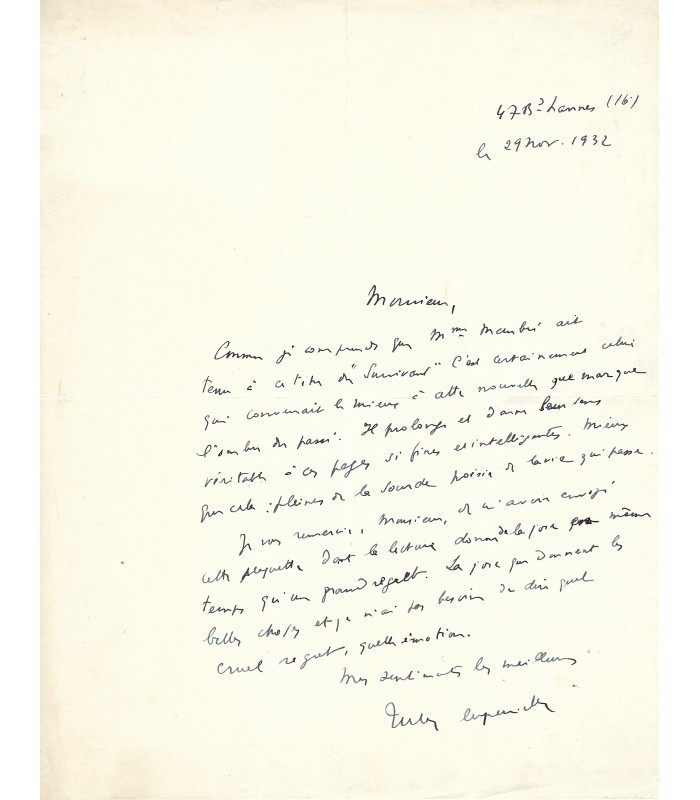 47 Bd Lannes (16)
le 29 Nov. 1932
Monsieur,
Comme je comprends que Mme ait
tenu à ce titre du "Survivant" C'est certainement celui
qui convenait le mieux à cette nouvelle que marque
l'ombre du passé. Il prolonge et donne leur sens
véritable à ces pages si fines et intelligentes. Mieux
que cela : pleines de la sourde poésie de la vie qui passe.
Je vous remercie, Monsieur, de m'avoir envoyé
cette plaquette dont la lecture donne de la joie en même
temps qu'un grand regret. La joie que donnent les
belles choses et je n'ai pas besoin de dire quel
cruel regret, quelle émotion.
Mes sentiments les meilleurs
Jules Supervielle